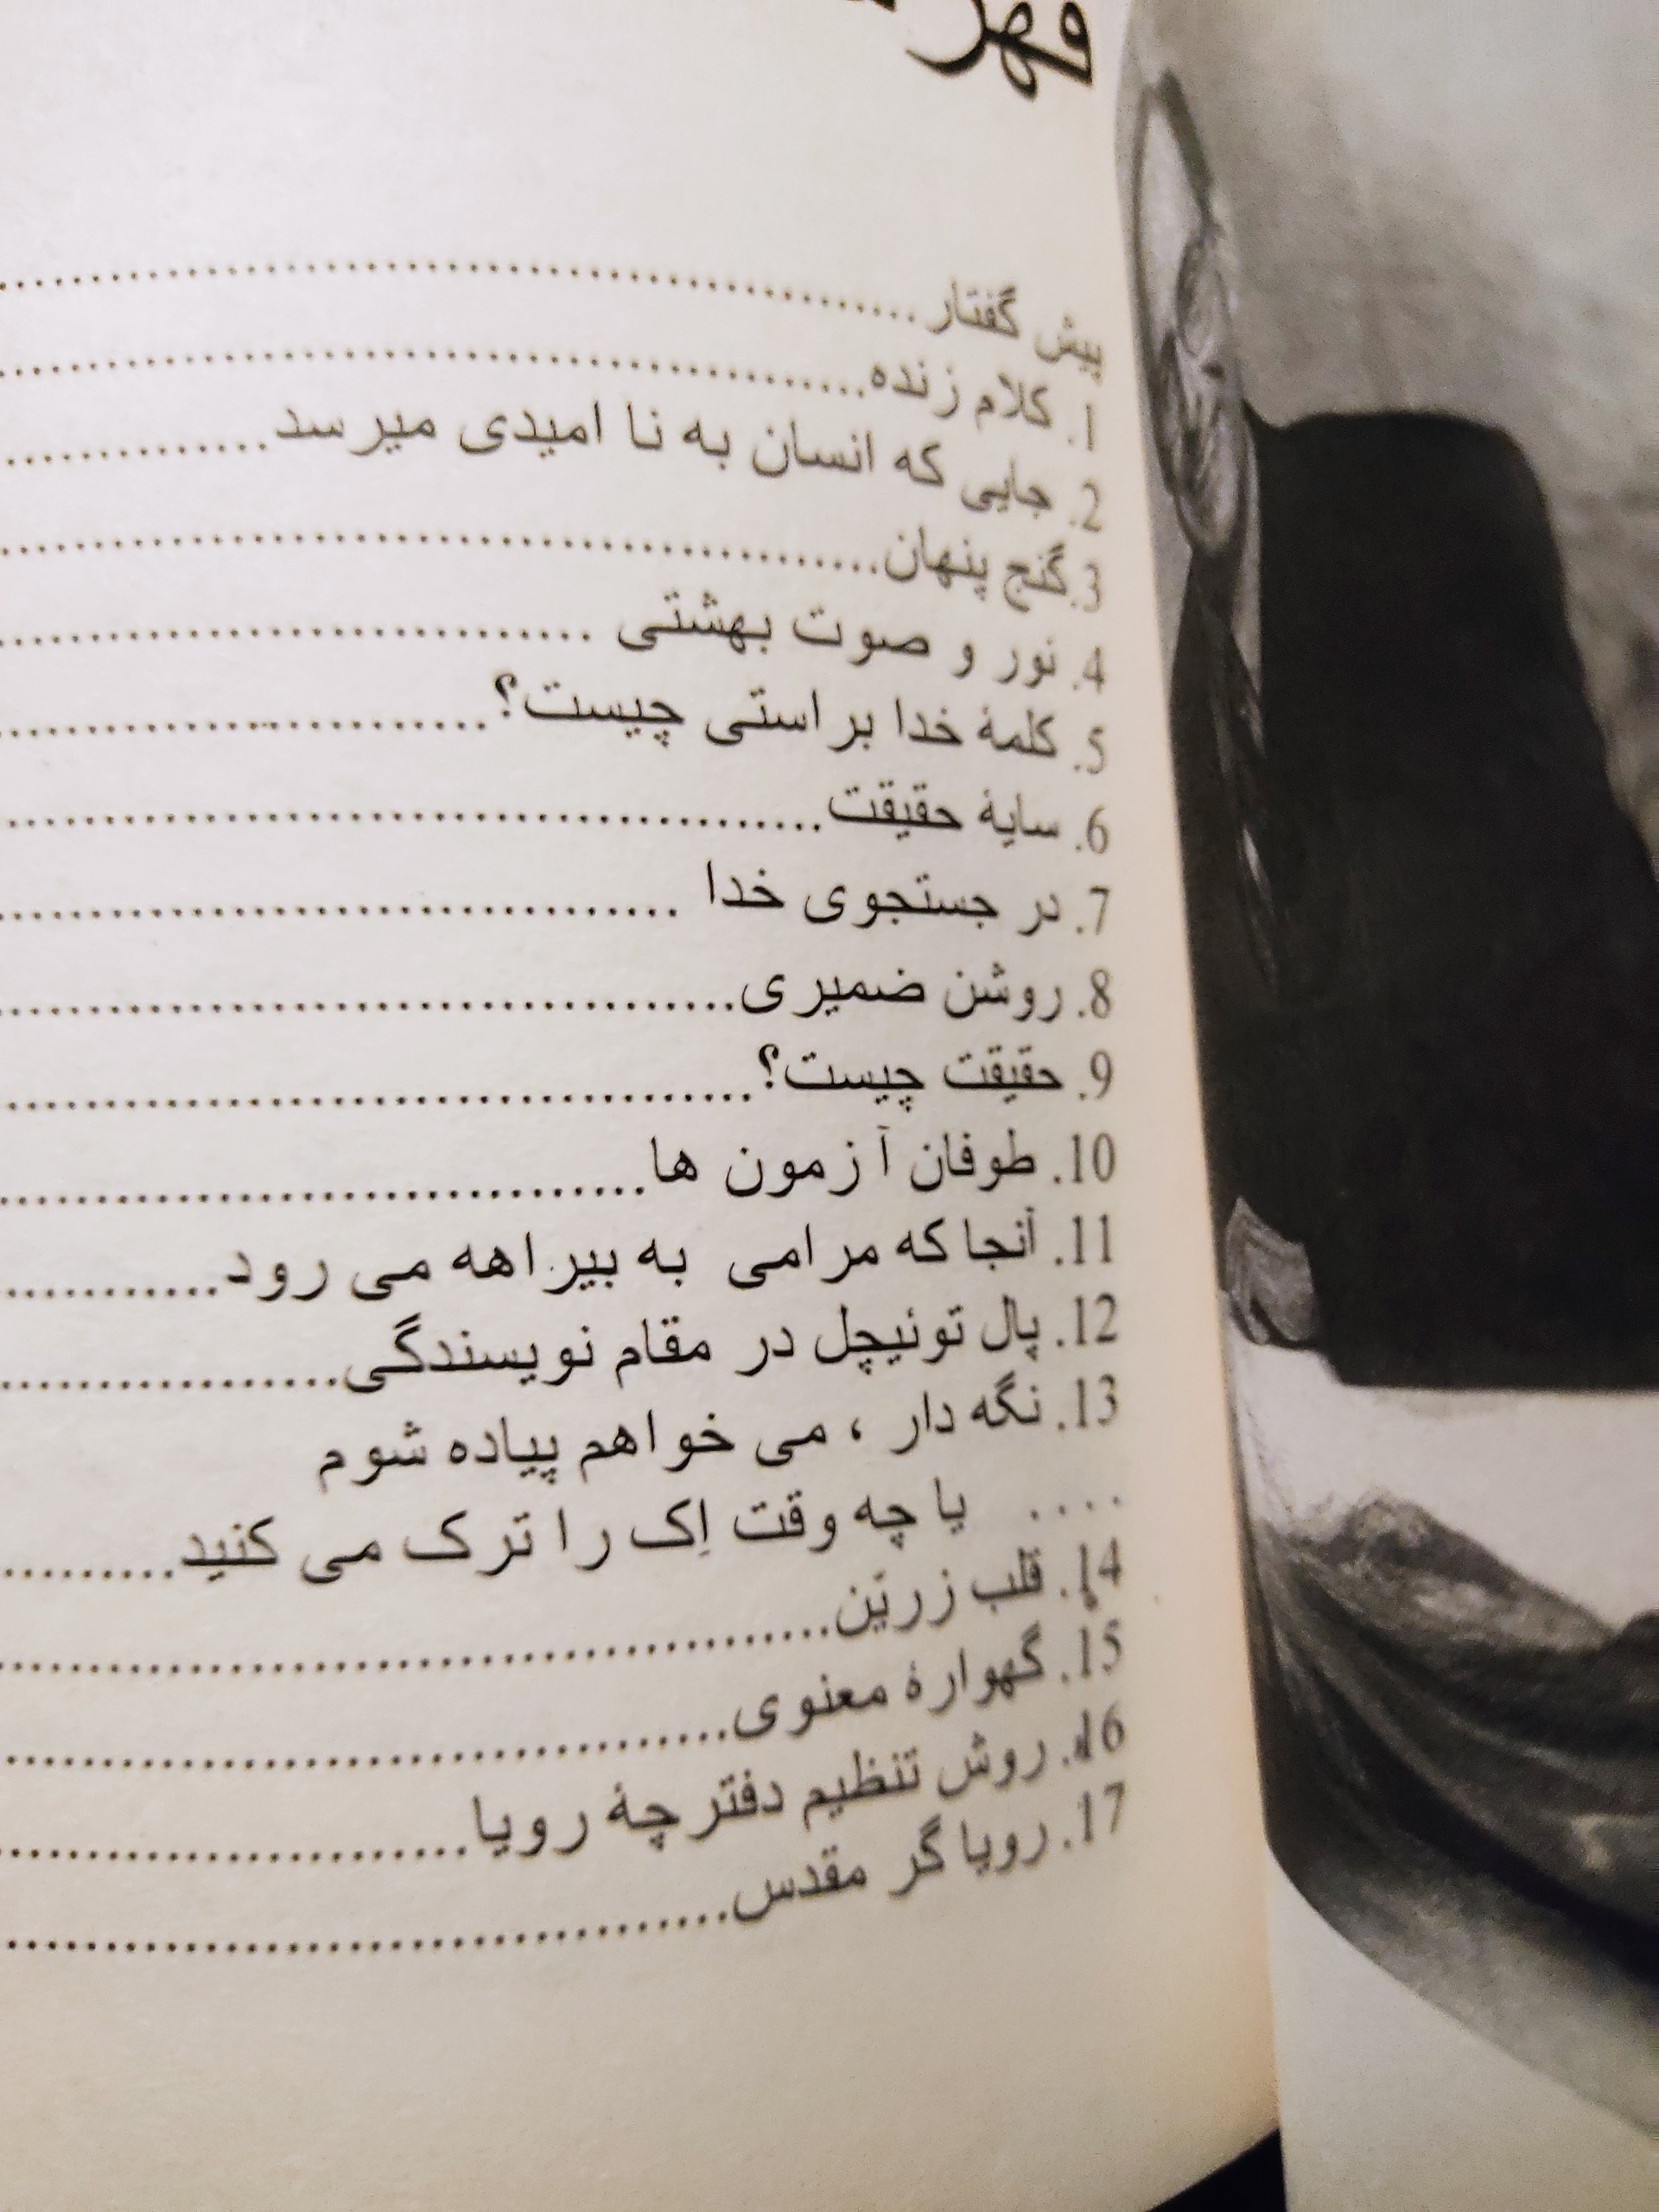 پیش گفتار
1. کلام زنده
2. جایی که انسان به نا امیدی میرسد
3. گنج پنهان
4. نور و صوت بهشتی
5. کلمهٔ خدا براستی چیست؟
6. سایهٔ حقیقت
7. در جستجوی خدا
8. روشن ضمیری
9. حقیقت چیست؟
10. طوفان آزمون ها
11. آنجا که مرامی به بیراهه می رود
12. پال توئیچل در مقام نویسندگی
13. نگه دار ، می خواهم پیاده شوم
.... یا چه وقت اِک را ترک می کنید
14. قلب زرین
15. گهوارهٔ معنوی
16. روش تنظیم دفترچهٔ رویا
17. رویا گر مقدس